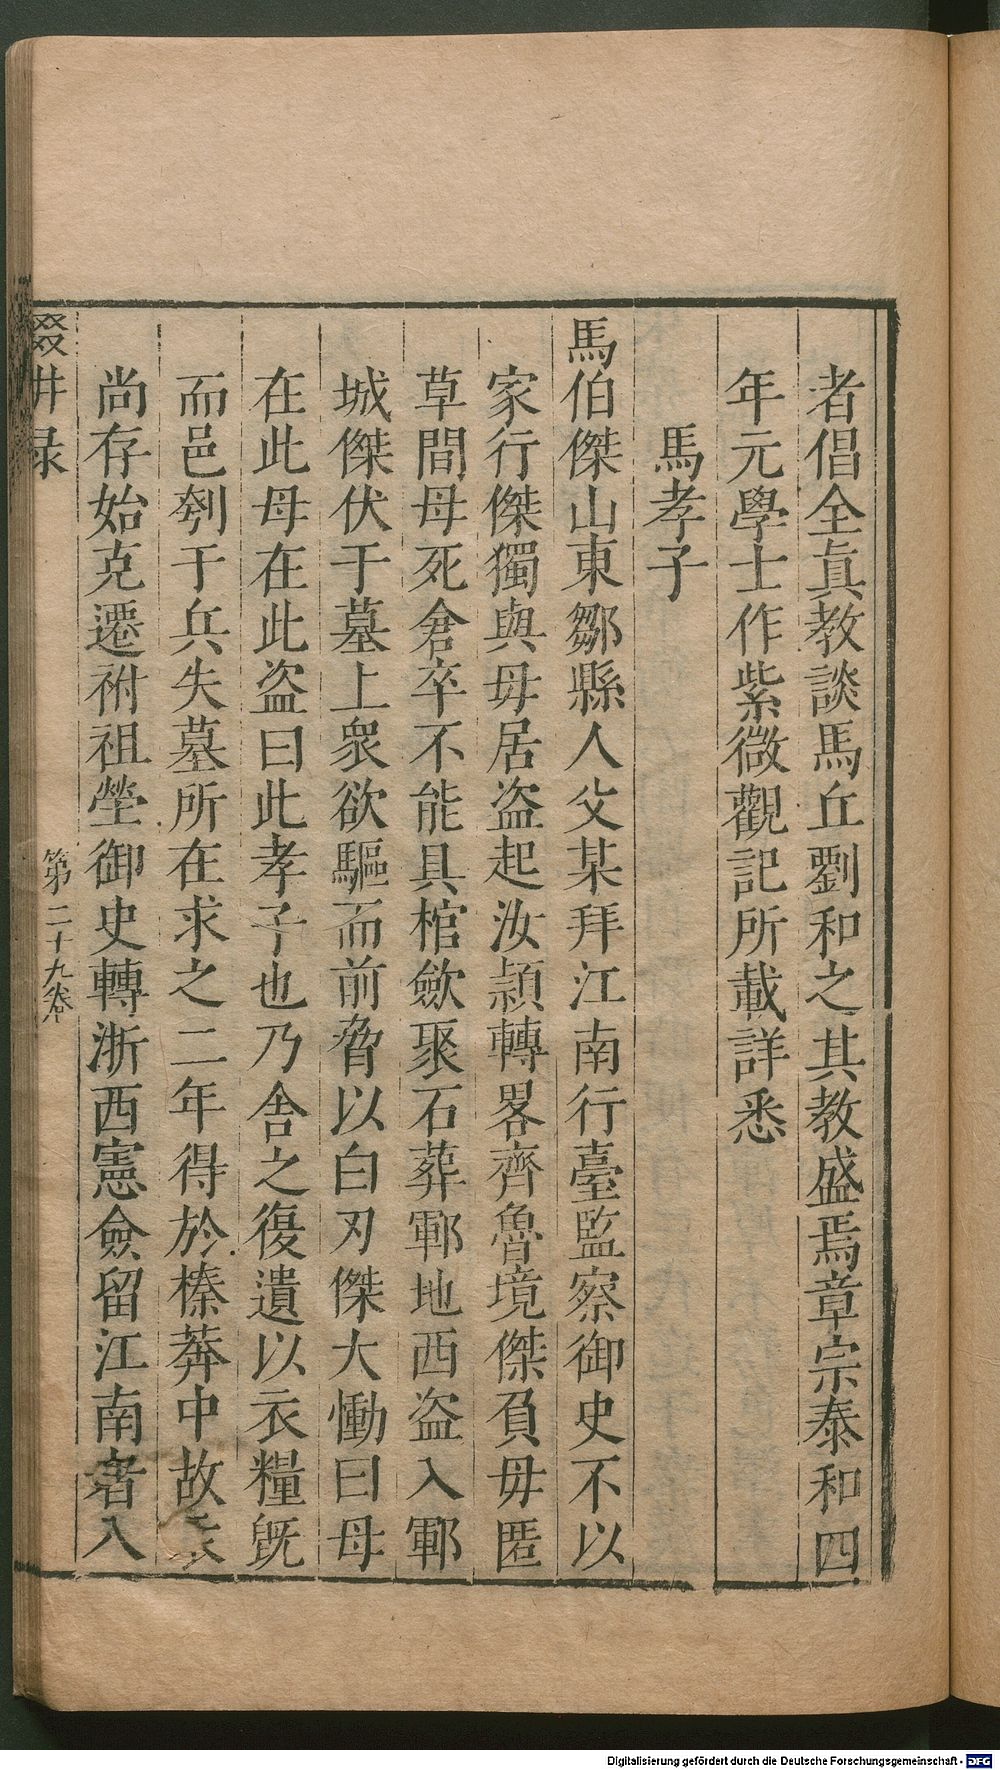 者倡全真教談馬丘劉和之其教盛焉章宗泰和四
年元學士作紫微觀記所載詳悉
馬孝子
馬伯傑山東鄒縣人父某拜江南行臺監察御史不以
家行傑獨與母居盗起汝潁轉畧齊魯境傑負母匿
草間母死倉卒不能具棺歛聚石葬鄆地西盗入鄆
城傑伏于墓上衆欲驅而前脅以白刃傑大慟曰母
在此母在此盗曰此孝子也乃舎之復遺以衣糧旣
而邑刳于兵失墓所在求之二年得於榛莽中故
尚存始克遷祔祖塋御史轉浙西憲僉留江南者入
輟耕录
第二十九卷
Digitalisierung gefördert durch die Deutsche Forschungsgemeinschaft - DFG